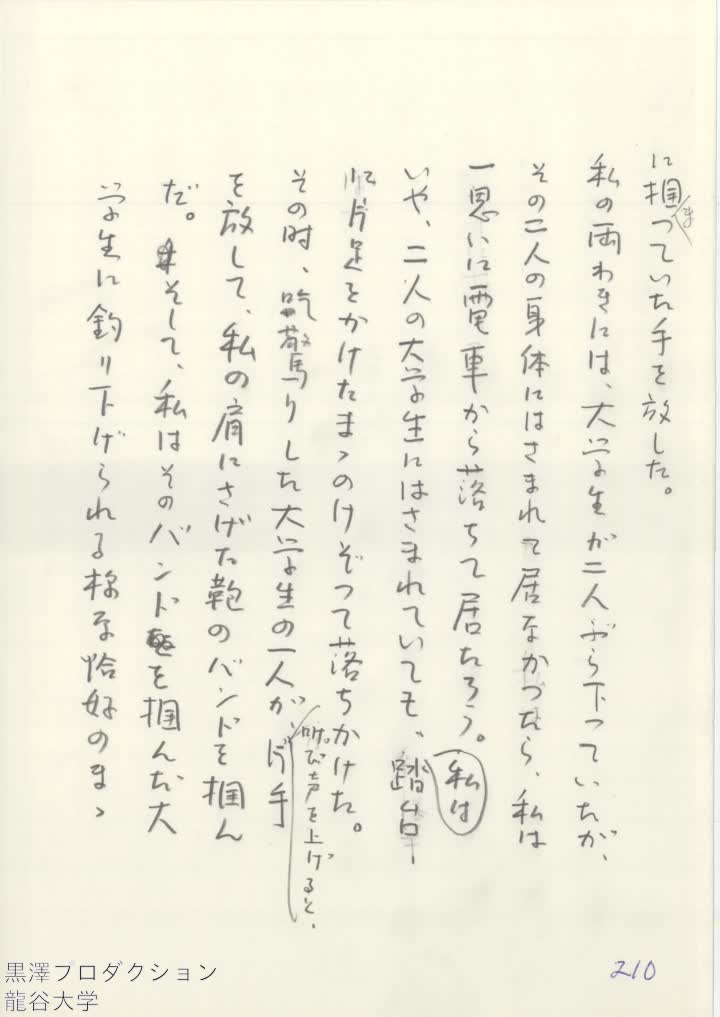 に掴まっていた手を放した。
私の両わきには、大学生が二人ぶら下っていたが、
その二人の身体にはさまれて居なかったら、私は
一思いに電車から落ちて居たろう。
いや、二人の大学生にはさまれていても、私は踏台
に片足をかけたまゝのけぞって落ちかけた。
その時、吃驚りした大学生の一人が、叫び声を上げると、片手
を放して、私の肩にさげた鞄のバンドを掴ん
だ。そして、私はそのバンドを掴んだ大
学生に釣り下げられる様な恰好のまゝ
210
黒澤プロダクション
龍谷大学